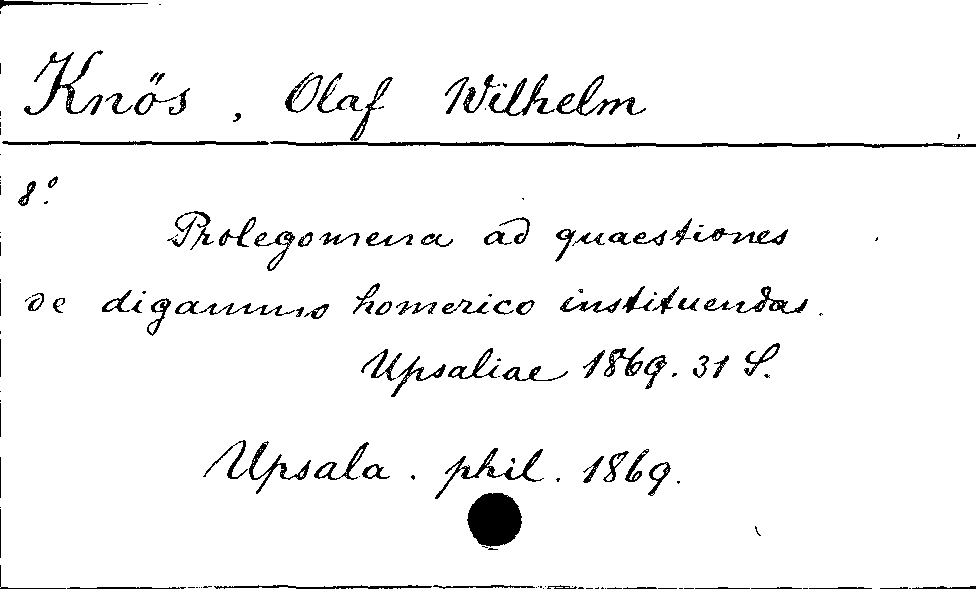 Knös, Olaf Wilhelm
8°.
Prolegomena ad quaestiones
de digammo homerico instituendas.
Upsaliae 1869. 31 S.
Upsala. phil. 1869.